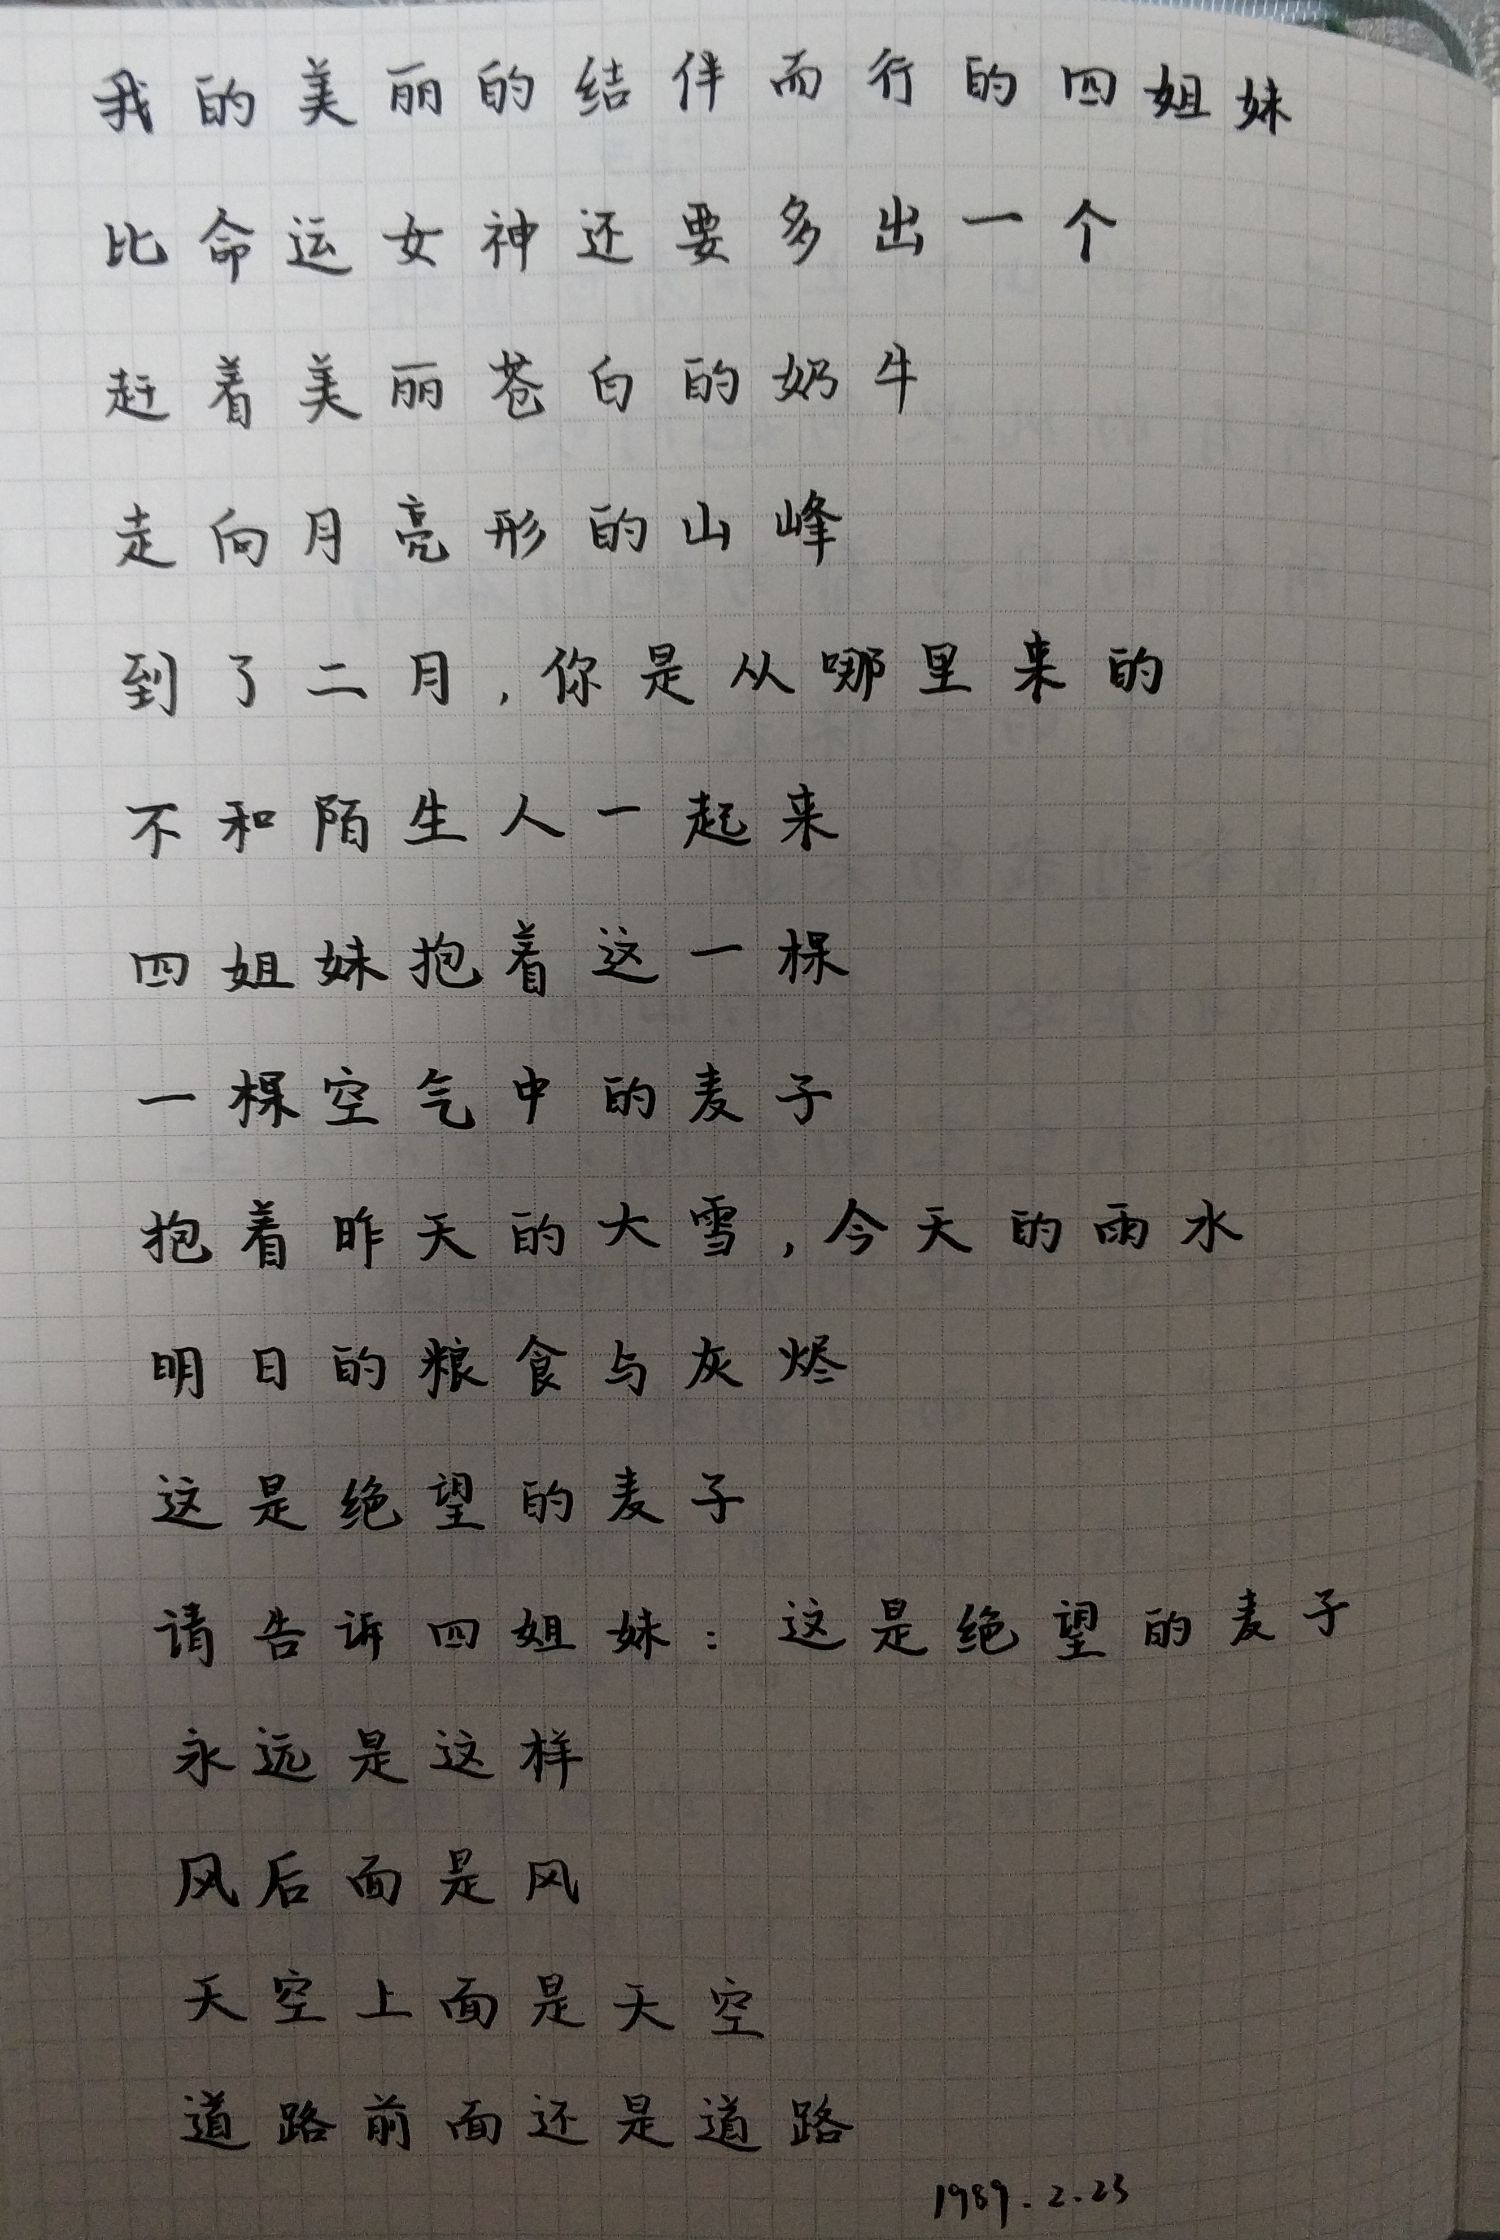 我的美丽的结伴而行的四姐妹
比命运女神还要多出一个
赶着美丽苍白的奶牛
走向月亮形的山峰
到了二月,你是从哪里来的
不和陌生人一起来
四姐妹抱着这一棵
一棵空气中的麦子
抱着昨天的大雪,今天的雨水
明日的粮食与灰烬
这是绝望的麦子
请告诉四姐妹:这是绝望的麦子
永远是这样
风后面是风
天空上面是天空
道路前面还是道路
1989.2.23